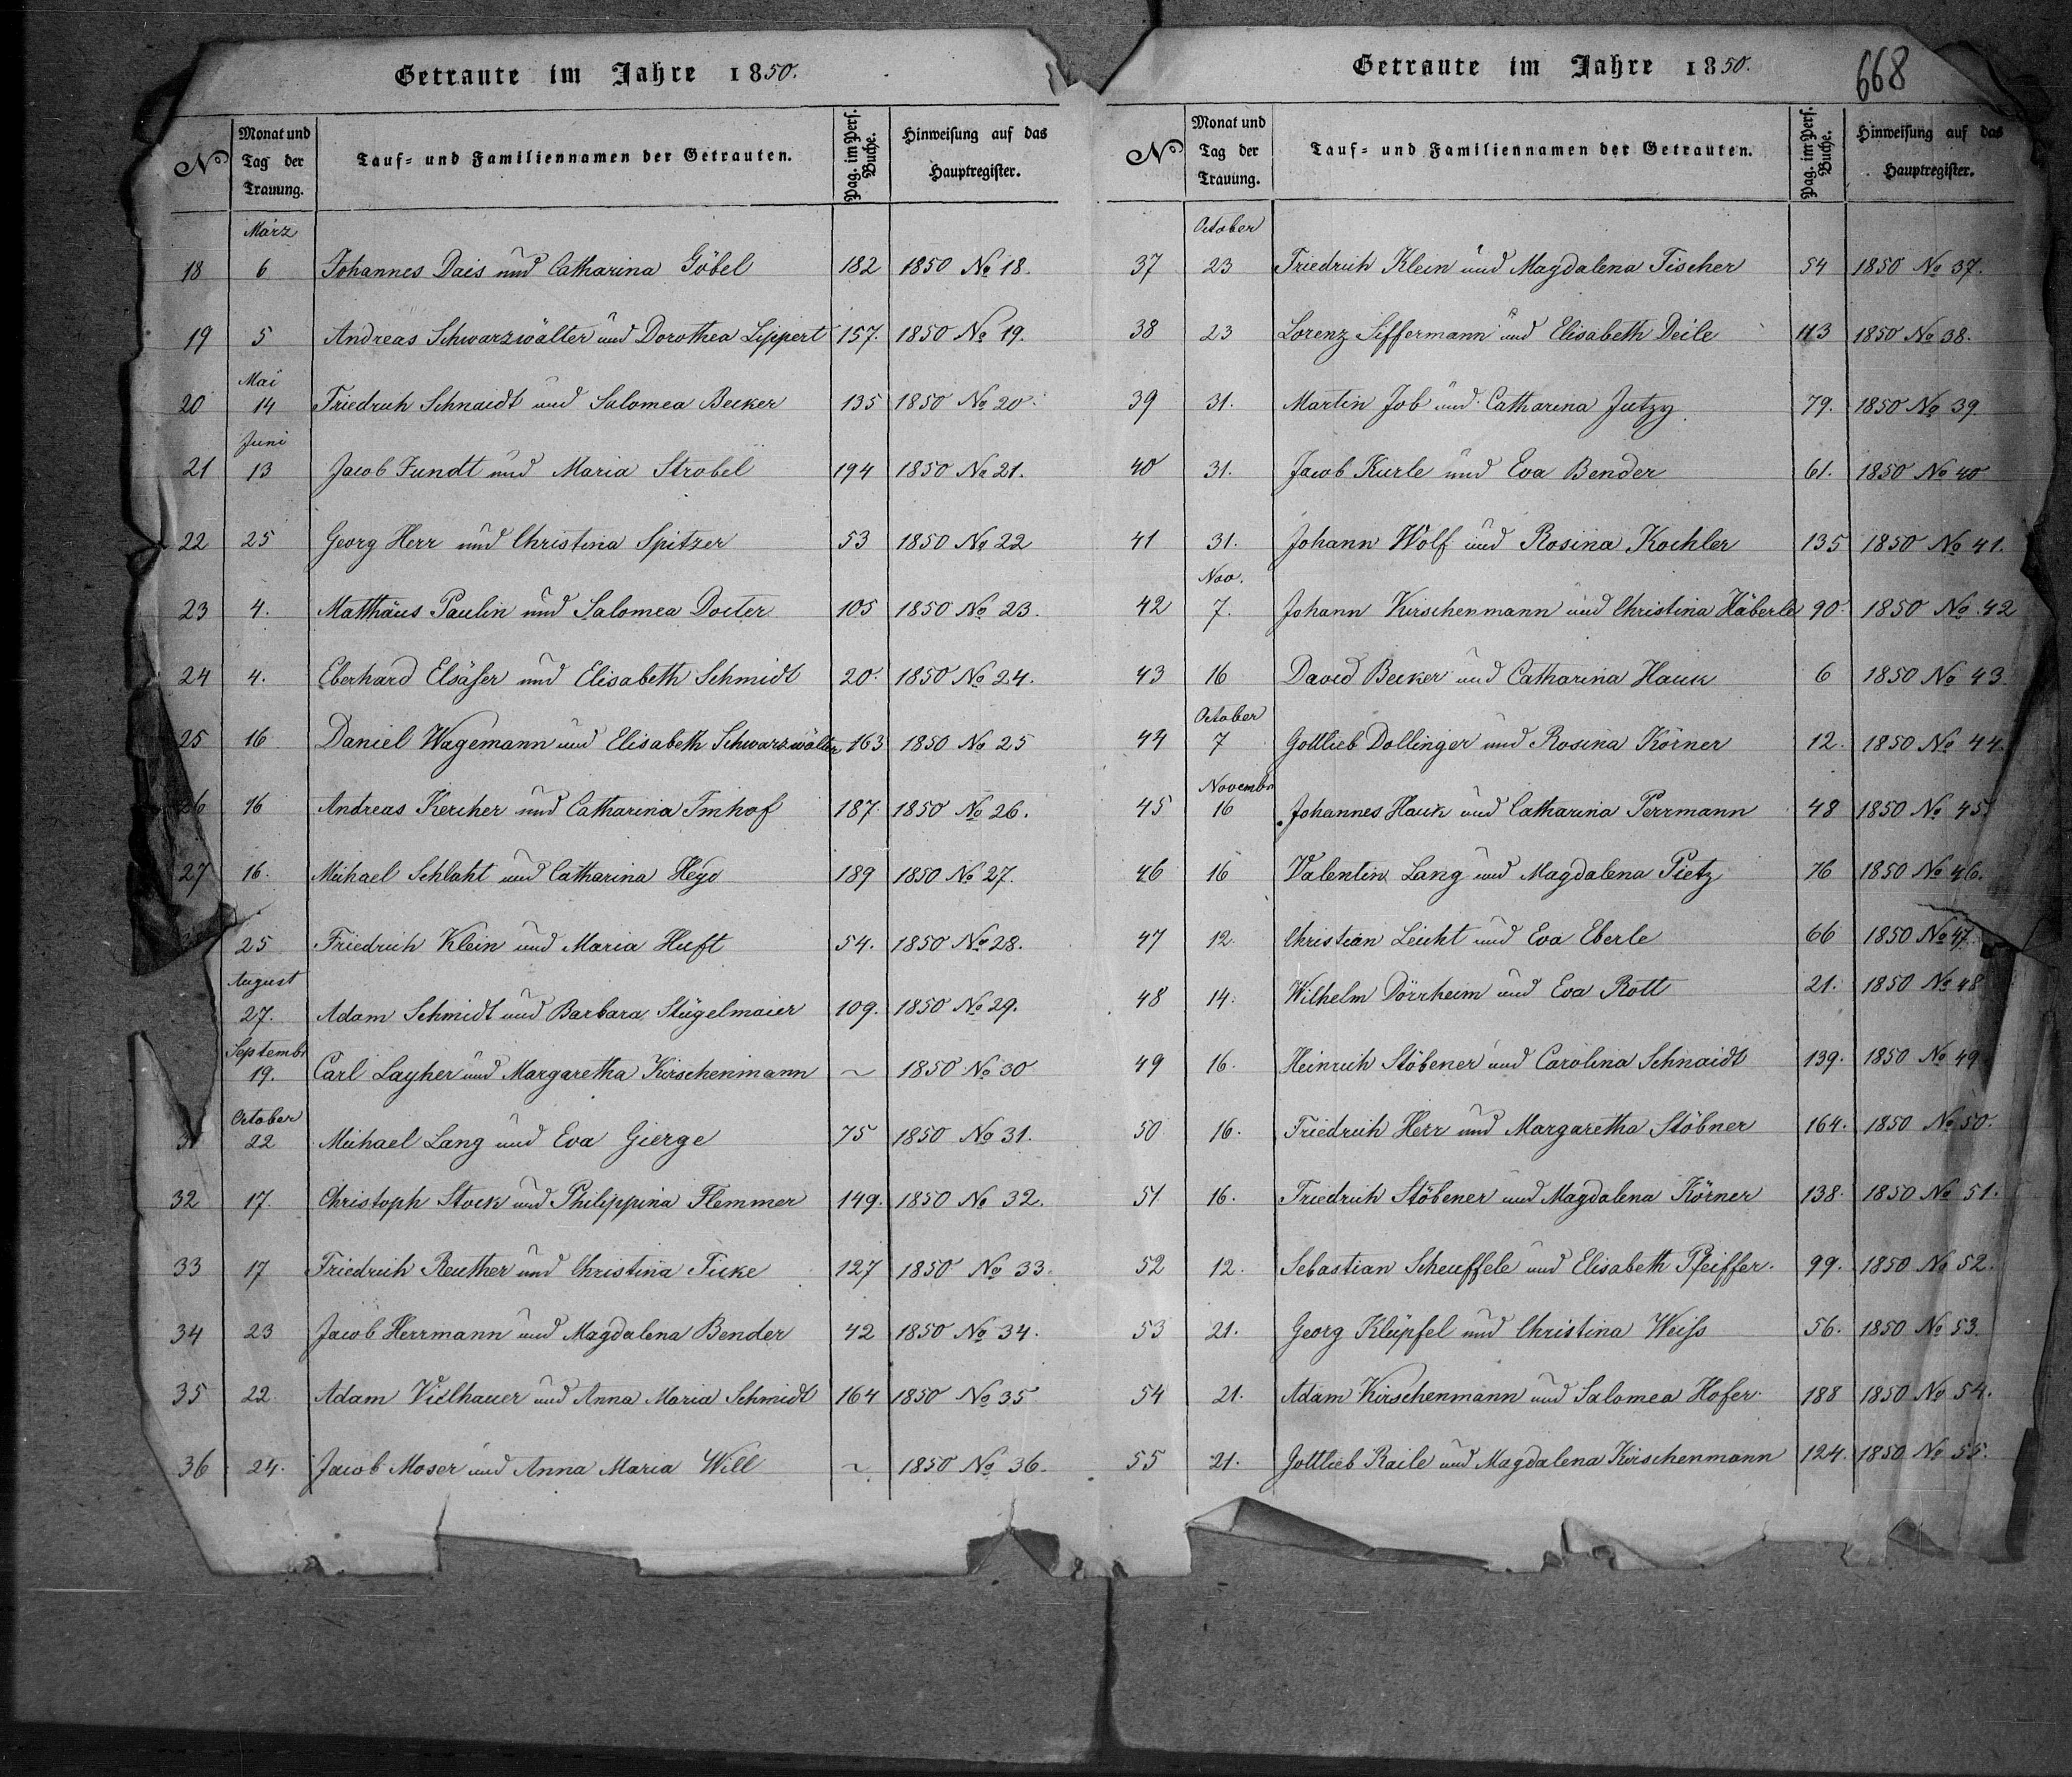 Getraute im Jahre 1850.
No Monat und Tag der Trauung. Tauf- und Familiennamen der Getrauten. Pag. im Pers. Buche. Hinweisung auf das Hauptregister.
März
18 6 Johannes Dais und Catharina Göbel 182 1850 No 18.
19 5 Andreas Schwarzwälter und Dorothea Lippert 157. 1850 No 19.
Mai
20 14 Friedrich Schnaidt und Salomea Becker 135 1850 No 20.
Juni
21 13 Jacob Fundt und Maria Strobel 194 1850 No 21.
22 25 Georg Herr und Christina Spitzer 53 1850 No 22
23 4. Matthäus Paulin und Salomea Docter 105 1850 No 23.
24 4. Eberhard Elsäßer und Elisabeth Schmidt 20. 1850 No 24.
25 16 Daniel Wagemann und Elisabeth Schwarzwälter 163 1850 No 25
26 16 Andreas Kercher und Catharina Imhof 187 1850 No 26.
27 16. Michael Schlaht und Catharina Heyd 189 1850 No 27.
25 Friedrich Klein und Maria Huft 54. 1850 No 28.
August
27. Adam Schmidt und Barbara Stügelmaier 109. 1850 No 29.
Septembr
19. Carl Layher und Margaretha Kirschenmann ~ 1850 No 30
October
31 22 Michael Lang und Eva Gierge 75 1850 No 31.
32 17. Christoph Stock und Philippina Flemmer 149. 1850 No 32.
33 17 Friedrich Reuther und Christina Ficke 127 1850 No 33.
34 23 Jacob Herrmann und Magdalena Bender 42 1850 No 34.
35 22 Adam Vielhauer und Anna Maria Schmidt 164 1850 No 35
36 24. Jacob Moser und Anna Maria Will ~ 1850 No 36.
Getraute im Jahre 1850.
668
No Monat und Tag der Trauung. Tauf- und Familiennamen der Getrauten. Pag. im Pers. Buche. Hinweisung auf das Hauptregister.
October
37 23 Friedrich Klein und Magdalena Fischer 54 1850 No 37.
38 23 Lorenz Siffermann und Elisabeth Deile 113 1850 No 38.
39 31. Martin Job und Catharina Jutzy 79. 1850 No 39
40 31. Jacob Kurle und Eva Bender 61. 1850 No 40
41 31. Johann Wolf und Rosina Kochler 135 1850 No 41.
Nov.
42 7. Johann Kirschenmann und Christina Häberle 90. 1850 No 42
43 16 David Becker und Catharina Hauk 6 1850 No 43
October
44 7 Gottlieb Dollinger und Rosina Körner 12. 1850 No 44.
Novembr
45 16 Johannes Hauk und Catharina Perrmann 48 1850 No 45.
46 16 Valentin Lang und Magdalena Pietz 76 1850 No 46.
47 12. Christian Leicht und Eva Eberle 66 1850 No 47.
48 14. Wilhelm Dörrheim und Eva Rott 21. 1850 No 48
49 16. Heinrich Stöbener und Carolina Schnaidt 139. 1850 No 49
50 16. Friedrich Herr und Margaretha Stöbner 164. 1850 No 50.
51 16. Friedrich Stöbener und Magdalena Körner 138. 1850 No 51.
52 12. Sebastian Scheuffele und Elisabeth Pfeiffer. 99. 1850 No 52.
53 21. Georg Klüpfel und Christina Weiß 56. 1850 No 53.
54 21. Adam Kirschenmann und Salomea Hofer. 188 1850 No 54.
55 21. Gottlieb Raile und Magdalena Kirschenmann 124. 1850 No 55.